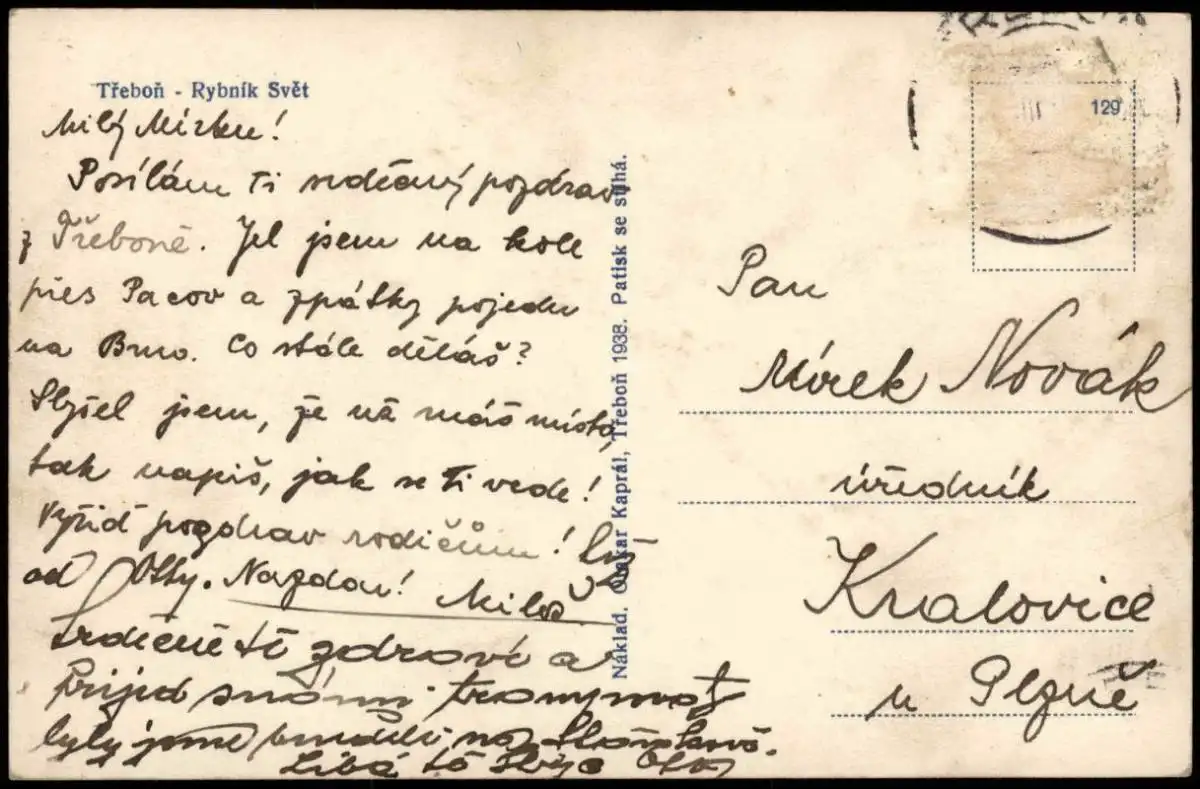 Třeboň - Rybník Svět
129
Milý Mirku!
Posílám Ti srdečný pozdrav
z Třeboně. Jel jsem na kole
přes Pacov a zpátky pojedu
na Brno. Co stále děláš?
Slyšel jsem, že už máš místo,
tak napiš, jak se Ti vede!
Vyřiď pozdrav rodičům!
od Otky. Nazdar! Miloš
Srdečně tě zdraví a
Přijeď s námi
byly jsme na
Líbá tě
Náklad. Otakar Kaprál, Třeboň 1938. Patisk se stíhá.
Pan
Mirek Novák
úředník
Kralovice
u Plzně